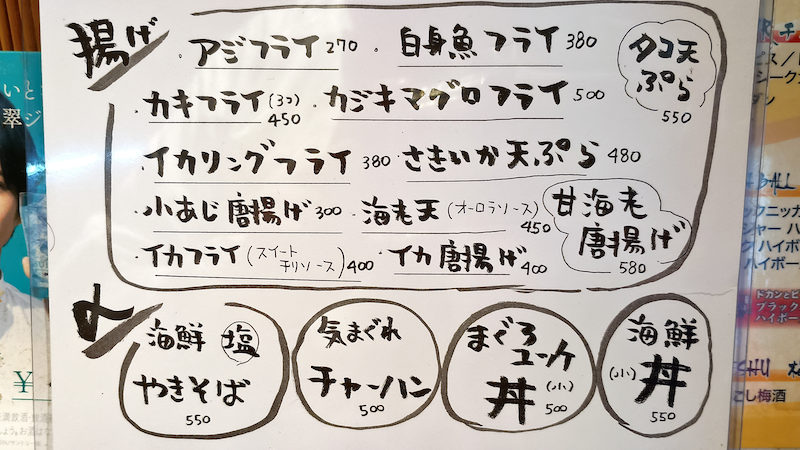 揚げ
・アジフライ 270 ・白身魚フライ 380
タコ天
ぷら
550
・カキフライ (3コ) 450 ・カジキマグロフライ 500
・イカリングフライ 380 ・さきいか天ぷら 480
・小あじ唐揚げ 300 ・海老天 (オーロラソース) 450
甘海老
唐揚げ
580
・イカフライ (スイートチリソース) 400 ・イカ唐揚げ 400
〆
海鮮 塩
やきそば
550
気まぐれ
チャーハン
500
まぐろ
ユッケ
丼 (小) 500
海鮮
(小) 丼
550
翠ジ
¥
ドカンとビ
ブラック
ハイボー
ハイボー
SHU 梅
こし梅酒